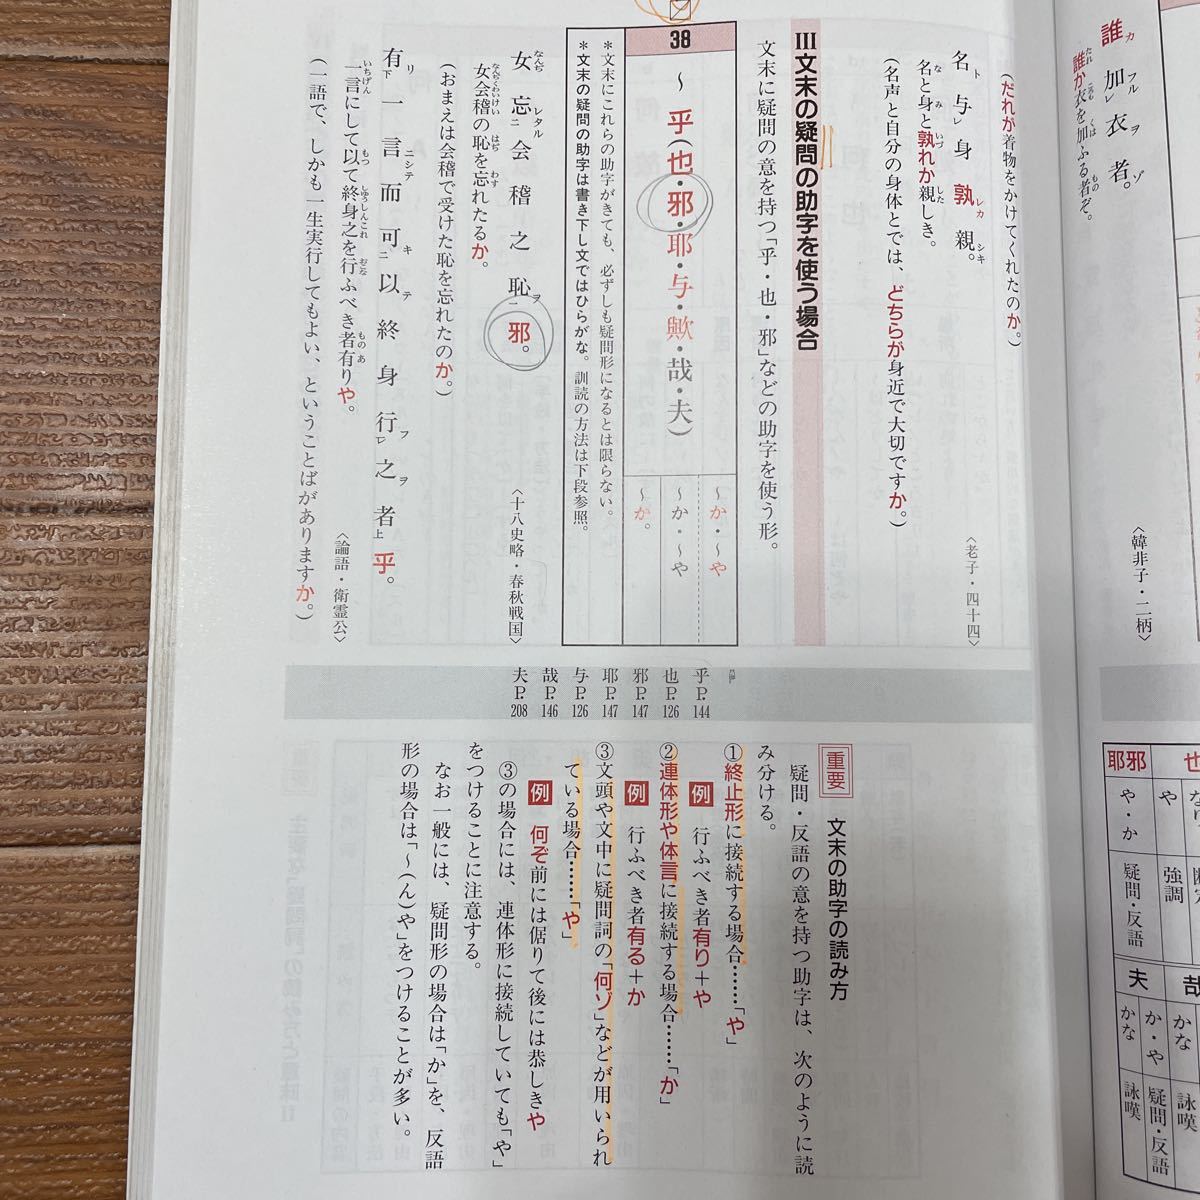 誰カ加フルレ衣ヲ者ゾ。
誰か衣を加ふる者ぞ。
〈韓非子・二柄〉
(だれが着物をかけてくれたのか。)
名ト与レ身孰レカ親シキ。
名と身と孰れか親しき。
〈老子・四十四〉
(名声と自分の身体とでは、どちらが身近で大切ですか。)
Ⅲ文末の疑問の助字を使う場合
文末に疑問の意を持つ「乎・也・邪」などの助字を使う形。
38
〜乎(也・邪・耶・与・歟・哉・夫)
〜か・〜や
〜か・〜や
〜か。
*文末にこれらの助字がきても、必ずしも疑問形になるとは限らない。
*文末の疑問の助字は書き下し文ではひらがな。訓読の方法は下段参照。
女忘レタル二会稽之恥ヲ一邪。
女会稽の恥を忘れたるか。
〈十八史略・春秋戦国〉
(おまえは会稽で受けた恥を忘れたのか。)
有リ下一言ニシテ而可キ二以テ終身行フ一レ之ヲ者上乎。
一言にして以て終身之を行ふべき者有りや。
〈論語・衛霊公〉
(一語で、しかも一生実行してもよい、ということばがありますか。)
乎P.144
也P.126
邪P.147
耶P.147
与P.126
哉P.146
夫P.208
耶邪
や・か
疑問・反語
や
強調
夫
かな
詠嘆
か・や
疑問・反語
かな
詠嘆
重要 文末の助字の読み方
疑問・反語の意を持つ助字は、次のように読
み分ける。
①終止形に接続する場合……「や」
例 行ふべき者有り+や
②連体形や体言に接続する場合……「か」
例 行ふべき者有る+か
③文頭や文中に疑問詞の「何ゾ」などが用いられ
ている場合……「や」
例 何ぞ前には倨りて後には恭しきや
③の場合には、連体形に接続していても「や」
をつけることに注意する。
なお一般には、疑問形の場合は「か」を、反語
形の場合は「〜(ん)や」をつけることが多い。